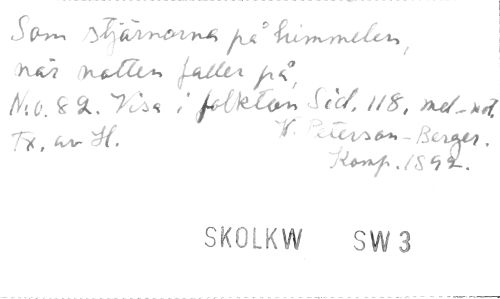 Som stjärnorna på himmelen,
när natten faller på,
N:o. 82. Visa i folkton Sid. 118, mel-not.
Tx. av H. W. Peterson-Berger.
Komp. 1892.
SKOLKW SW 3